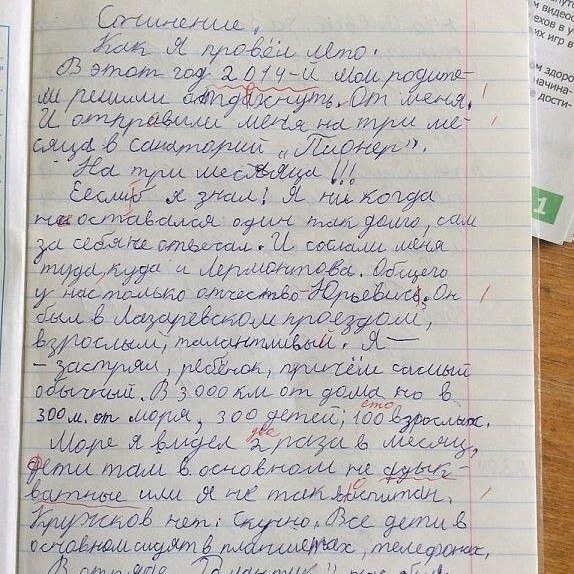 Сочинение.
Как я провёл лето.
В этот год 2014-й мои родите-
ли решили отдахнуть. От меня.
И отправили меня на три ме-
сяца в санаторий „Пионер".
На три месяца!!!
Еслиб я знал! Я ни когда
не оставался один так долго, сам
за себя не отвечал. И сослали меня
туда, куда и Лермонтова. Общего
у нас только отчество - Юрьевич. Он
был в Лазаревском проездом,
взрослый, талантливый. Я —
- застрял, ребёнок, причём самый
обычный. В 3000 км от дома но в
300 м. от моря, 300 детей, 100 взрослых.
сто
Море я видел 2 раза в месяц,
два
дети там в основном не
ватные или я не так воспитан.
Кружков нет: Скучно. Все дети в
основном сидят в планшетах, телефонах.
В отряде
1